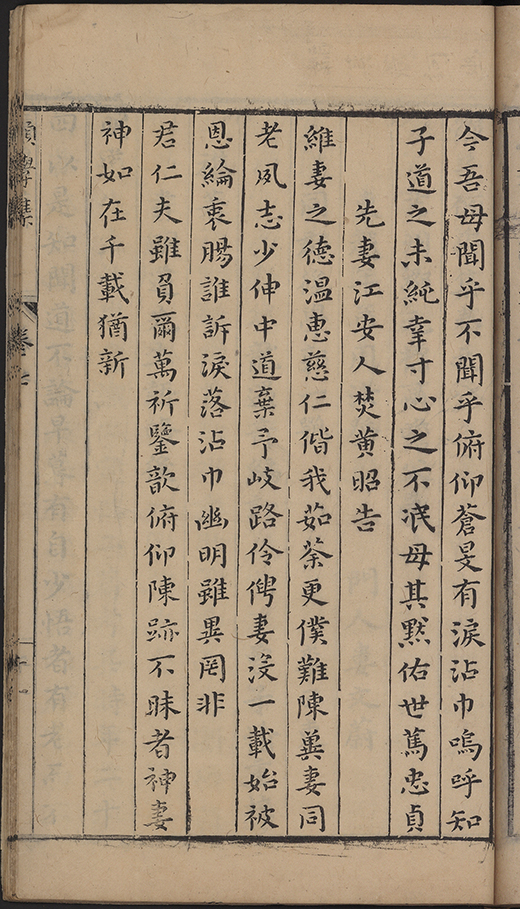 今吾母聞乎不聞乎俯仰蒼旻有淚沾巾嗚呼知
子道之未純幸寸心之不泯母其默佑世篤忠貞
先妻江安人焚黄昭告
維妻之德温惠慈仁偕我茹荼更僕難陳冀妻同
老夙志少伸中道棄予岐路伶俜妻沒一載始被
恩綸衷腸誰訴淚落沾巾幽明雖異罔非
君仁夫雖負爾萬祈鑒歆俯仰陳跡不昧者神妻
神如在千載猶新
卷七